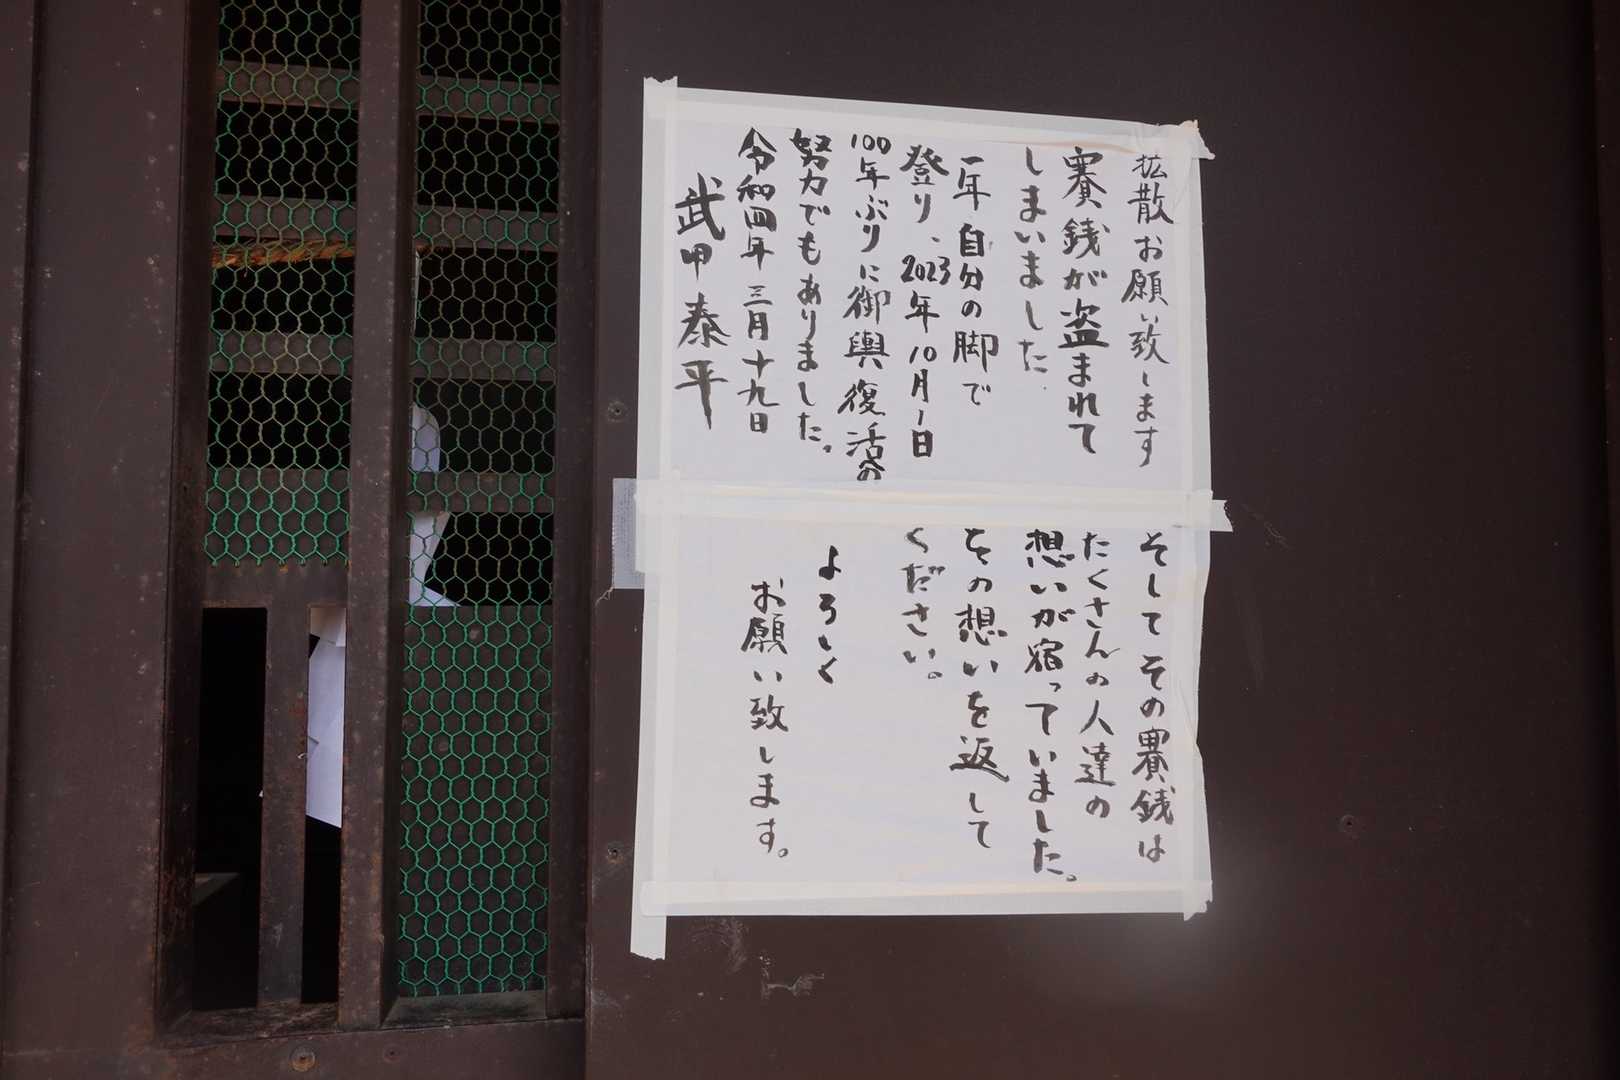 拡散お願い致します
賽銭が盗まれて
しまいました
一年 自分の脚で
登り、2023年10月1日
100年ぶりに御輿復活の
努力でもありました。
令和四年 三月十九日
武甲 泰平
そしてその賽銭は
たくさんの人達の
想いが宿っていました。
その想いを返して
ください。
よろしく
お願い致します。